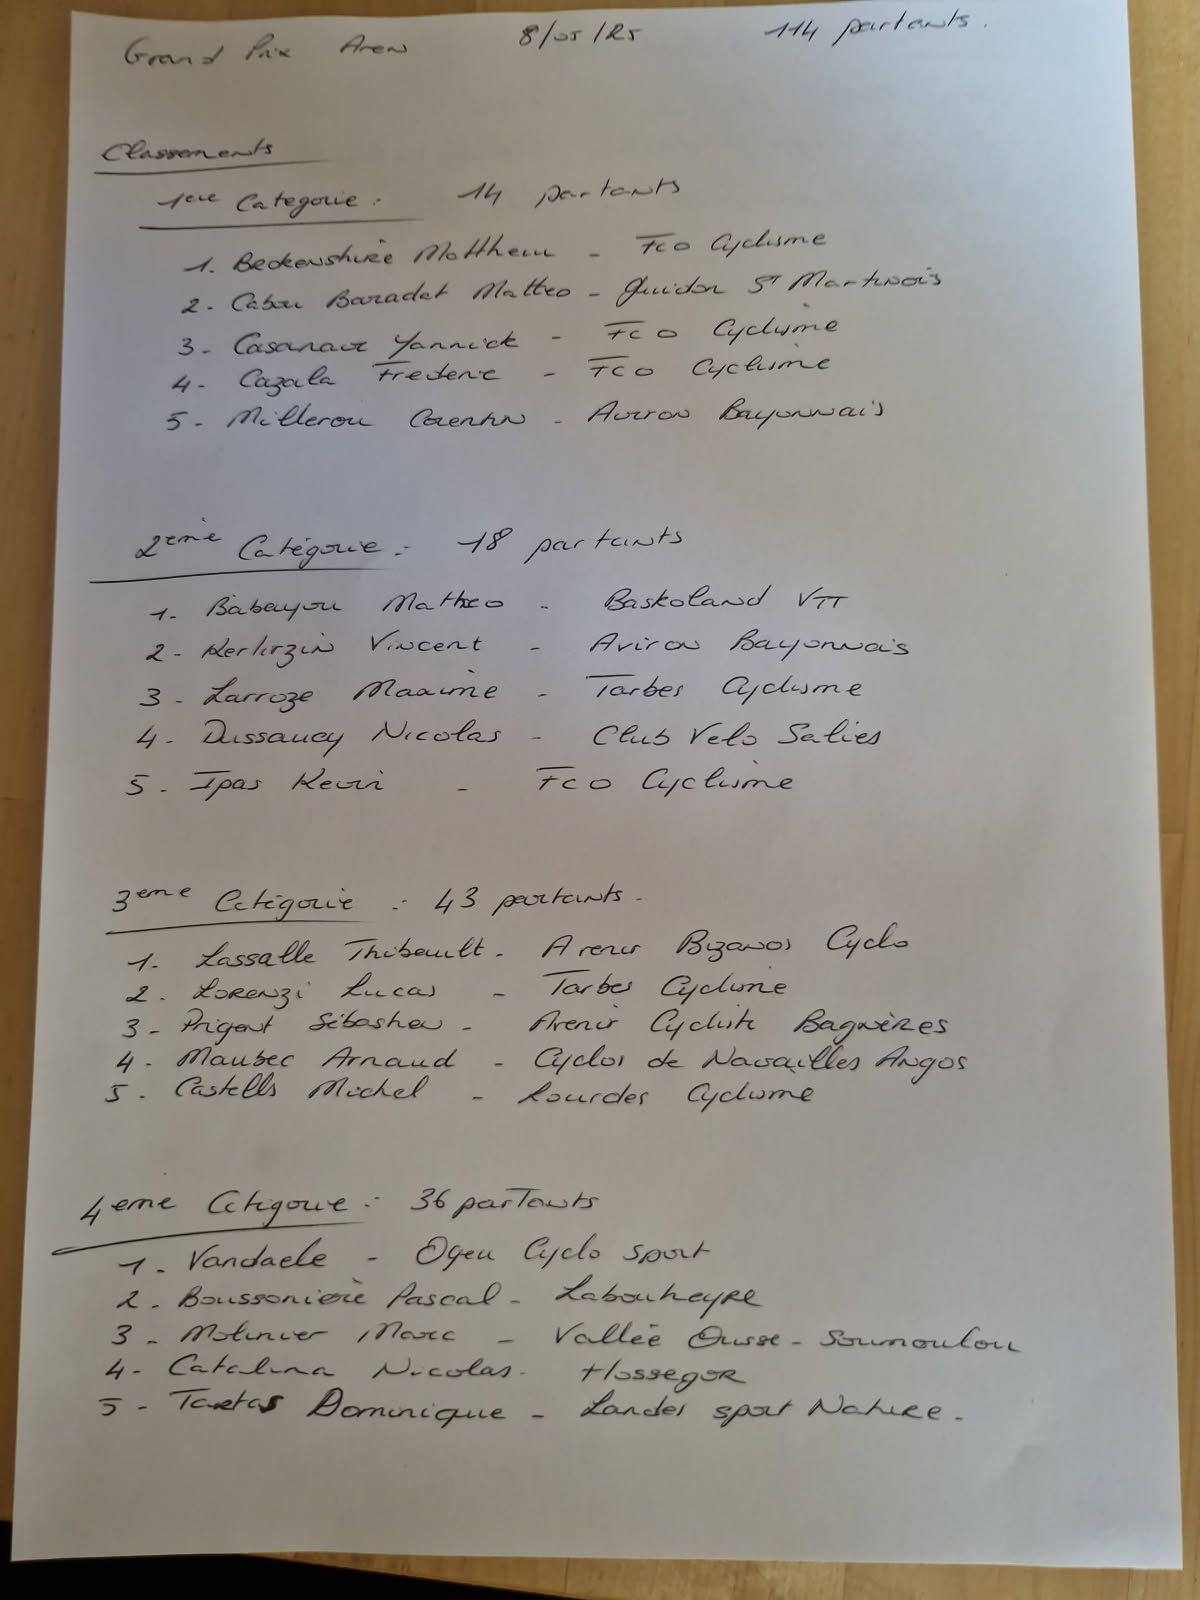 Grand Prix Aren 8/05/25 114 partants.
Classements
1ere Categorie : 14 partants
1. Beckenshire Matthew - FCO Cyclisme
2. Cabou Baradat Matteo - Guidon St Martinois
3 - Casanave Yannick - FCO Cyclisme
4 - Cazala Frederic - FCO Cyclisme
5 - Millerou Corentin - Aviron Bayonnais
2ème Catégorie : 18 partants
1. Babayou Matheo - Baskoland VTT
2 - Kerhrzin Vincent - Aviron Bayonnais
3 - Larroze Maxime - Tarbes Cyclisme
4 - Dussaucy Nicolas - Club Velo Salies
5 - Ipas Kevin - FCO Cyclisme
3eme Catégorie : 43 partants.
1. Lassalle Thibault - Avenir Bizanos Cyclo
2. Lorenzi Lucas - Tarbes Cyclisme
3 - Prigent Sébastien - Avenir Cycliste Bagnères
4 - Maubec Arnaud - Cyclos de Navailles Angos
5 - Castells Michel - Lourdes Cyclisme
4eme Catégorie : 36 partants
1. Vandaele - Ogeu Cyclo sport
2. Boussonière Pascal - Labouheyre
3 - Molinier Marc - Vallée Ousse - Soumoulou
4 - Catalina Nicolas - Hossegor
5 - Tartas Dominique - Landes sport Nature.